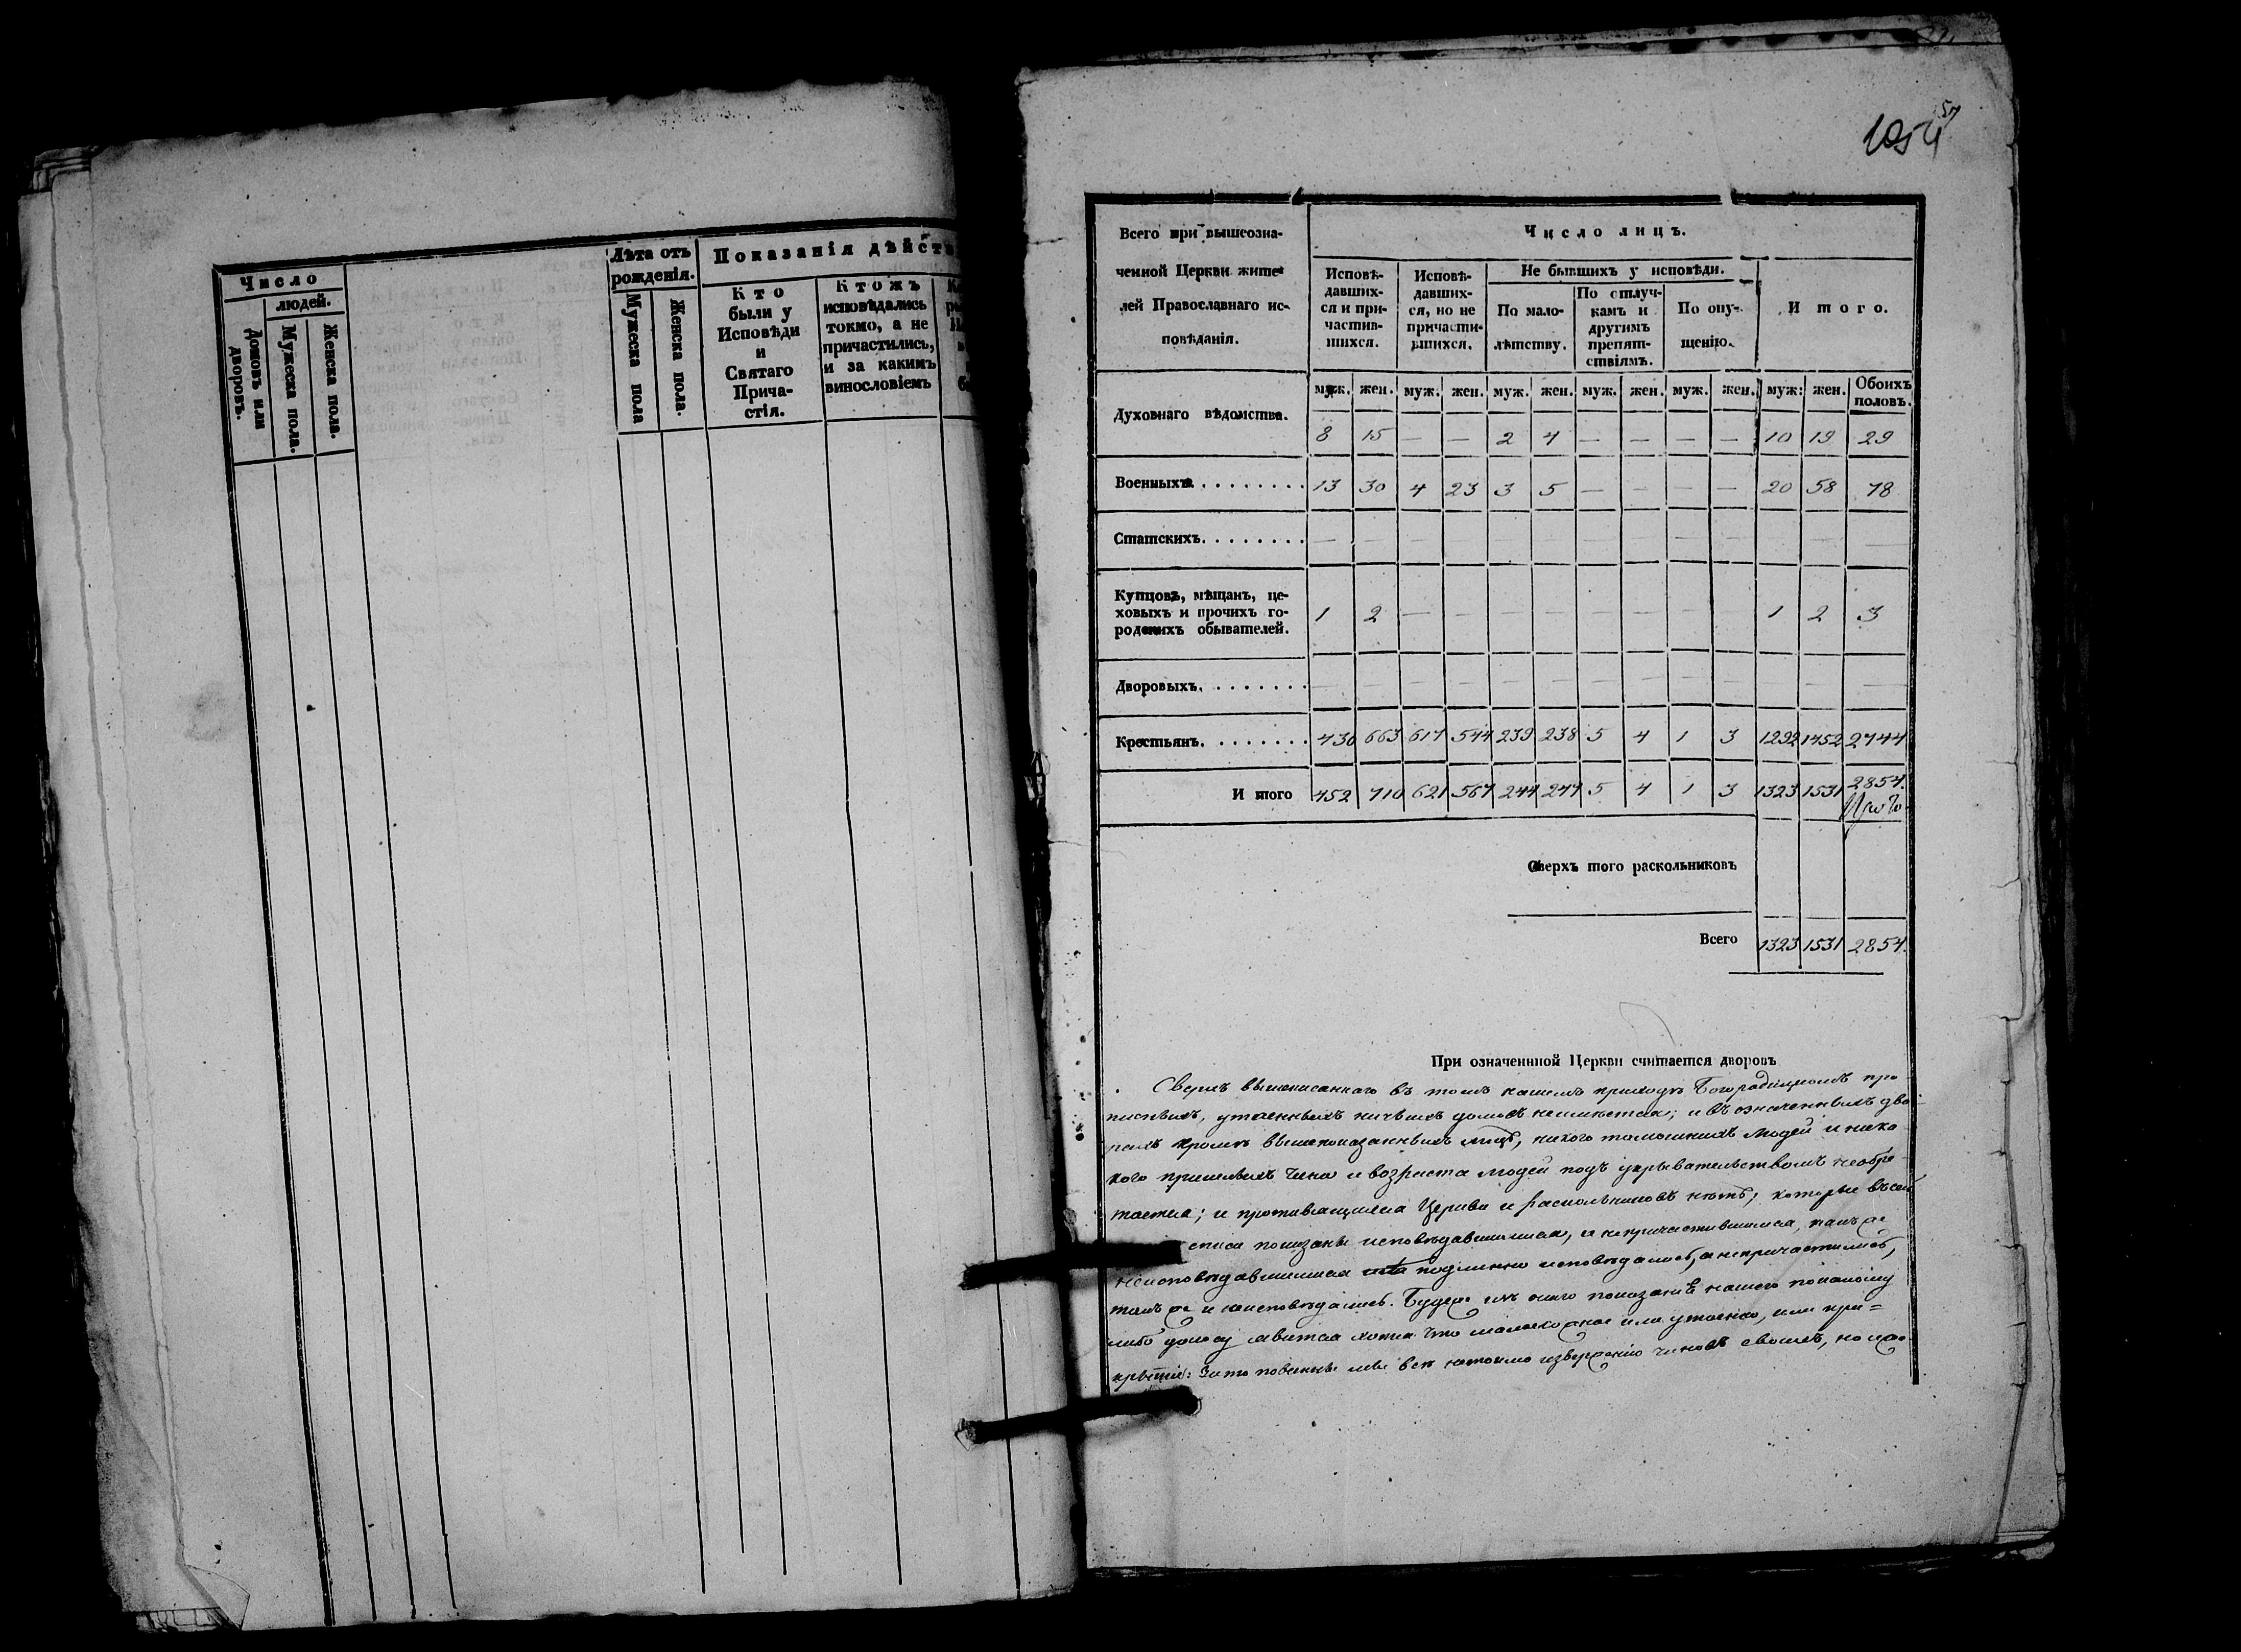 Число
людей.
Домовъ или дворовъ.
Мужеска пола.
Женска пола.
Лѣта отъ
рожденія.
Мужеска пола
Женска пола.
Показанія дѣйст
Кто
были у
Исповѣди
и
Святаго
Прича-
стія.
Ктожъ
исповѣдались
токмо, а не
причастились,
и за какимъ
винословіемъ
Всего при вышеозна-
ченной Церкви жите-
лей Православнаго ис-
повѣданія.
Число лицъ.
Исповѣ-
давших-
ся и при-
частив-
шихся.
Исповѣ-
давших-
ся, но не
причасти-
вшихся.
Не бывшихъ у исповѣди.
По мало-
лѣтству.
По отлуч-
камъ и
другимъ
препят-
ствіямъ.
По опу-
щенію.
Итого.
муж. жен. муж. жен. муж. жен. муж. жен. муж. жен. муж: жен. Обоихъ половъ.
Духовнаго вѣдомства. 8 15 — — 2 4 — — — — 10 19 29
Военныхъ 13 30 4 23 3 5 — — — — 20 58 78
Статскихъ. — — — — — — — — — — — —
Купцовъ, мѣщанъ, це-
ховыхъ и прочихъ го-
родскихъ обывателей. 1 2 — — — — — — — — 1 2 3
Дворовыхъ. — — — — — — — — — — — — —
Крестьянъ. 430 663 617 544 239 238 5 4 1 3 1292 1452 2744
И того 452 710 621 567 244 247 5 4 1 3 1323 1531 2854.
Сверхъ того раскольниковъ
Всего 1323 1531 2854.
При означенной Церкви считается дворовъ
Сверхъ вышеписаннаго въ томъ нашемъ приходѣ Богородицкомъ про
писныхъ, утаенныхъ ничьихъ домовъ неимѣется; и въ означенныхъ дво-
рахъ кромѣ вышепоказанныхъ лицъ, никого тамошнихъ людей и ника
кого пришлыхъ чина и возраста людей подъ укрывательствомъ необрѣ
тается; и противящихся Церкви и раскольниковъ нѣтъ; которые въсей
списи показаны исповѣдавшимися, и непричастившимися, такъ же
неисповѣдавшимися подлинно исповѣдались, а непричастились,
такъ же и неисповѣдались. Будеже изъ онаго показанія нашего покакому
либо доносу явится хотя что малое ложное или утаенно, или при=
крытіе: Зато повинны мы всѣ
изверженію чиновъ своихъ,